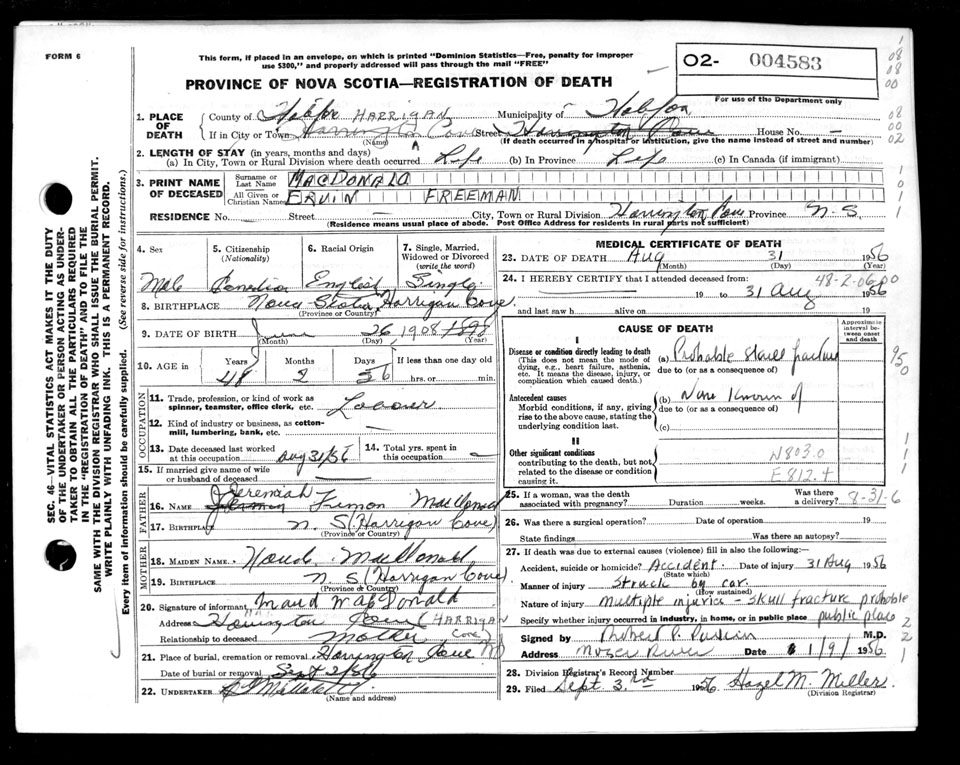 FORM 6
This form, if placed in an envelope, on which is printed "Dominion Statistics—Free, penalty for improper
use $300," and properly addressed will pass through the mail "FREE"
PROVINCE OF NOVA SCOTIA—REGISTRATION OF DEATH
O2- 004583
For use of the Department only
1. PLACE OF DEATH
County of Halifax HARRIGAN Municipality of Halifax
If in City or Town Harrington Cove Street Harrington Cove House No. —
(Name) (If death occurred in a hospital or institution, give the name instead of street and number)
2. LENGTH OF STAY (in years, months and days)
(a) In City, Town or Rural Division where death occurred Life (b) In Province Life (c) In Canada (if immigrant)
3. PRINT NAME OF DECEASED
Surname or Last Name MACDONALD
All Given or Christian Names ERVIN FREEMAN
RESIDENCE No. — Street — City, Town or Rural Division Harrington Cove Province N.S
(Residence means usual place of abode. Post Office Address for residents in rural parts not sufficient)
4. Sex 5. Citizenship (Nationality) 6. Racial Origin 7. Single, Married, Widowed or Divorced (write the word)
Male Canadian English Single
8. BIRTHPLACE Nova Scotia Harrigan Cove
(Province or Country)
9. DATE OF BIRTH June 26 1908 1898
(Month) (Day) (Year)
10. AGE in Years Months Days If less than one day old
48 2 56 hrs. or min.
OCCUPATION
11. Trade, profession, or kind of work as spinner, teamster, office clerk, etc. Laborer
12. Kind of industry or business, as cotton-mill, lumbering, bank, etc. —
13. Date deceased last worked at this occupation Aug 31/56 14. Total yrs. spent in this occupation —
15. If married give name of wife or husband of deceased
FATHER
16. NAME Jeremiah MacDonald
17. BIRTHPLACE N. S (Harrigan Cove)
(Province or Country)
MOTHER
18. MAIDEN NAME MacDonald
19. BIRTHPLACE N. S (Harrigan Cove)
(Province or Country)
20. Signature of informant Maud MacDonald
Address Harrington Cove (HARRIGAN COVE)
Relationship to deceased Mother
21. Place of burial, cremation or removal Harrington Cove NS
Date of burial or removal Sept 2/56
22. UNDERTAKER
(Name and address)
MEDICAL CERTIFICATE OF DEATH
23. DATE OF DEATH Aug 31 1956
(Month) (Day) (Year)
48-2-06 00
24. I HEREBY CERTIFY that I attended deceased from:
— 19 to 31 Aug 1956
and last saw h alive on 19
CAUSE OF DEATH
Approximate interval between onset and death
I
Disease or condition directly leading to death
(This does not mean the mode of dying, e.g., heart failure, asthenia, etc. It means the disease, injury, or complication which caused death.)
(a) Probable skull fracture
due to (or as a consequence of)
Antecedent causes
Morbid conditions, if any, giving rise to the above cause, stating the underlying condition last.
(b) None known of
due to (or as a consequence of)
(c)
II
Other significant conditions
contributing to the death, but not related to the disease or condition causing it.
N803.0
E812.4
25. If a woman, was the death associated with pregnancy? Duration weeks. Was there a delivery? 8-31-6
26. Was there a surgical operation? Date of operation 19
State findings Was there an autopsy?
27. If death was due to external causes (violence) fill in also the following:—
Accident, suicide or homicide? Accident. Date of injury 31 Aug 1956
(State which)
Manner of injury Struck by car.
(How sustained)
Nature of injury multiple injuries - skull fracture probable
Specify whether injury occurred in industry, in home, or in public place public place
Signed by M.D.
Address Moser River Date 1/9/ 1956
28. Division Registrar's Record Number
29. Filed Sept. 3rd 1956 Hazel M. Miller
(Division Registrar)
SEC. 46—VITAL STATISTICS ACT MAKES IT THE DUTY
OF THE UNDERTAKER OR PERSON ACTING AS UNDER-
TAKER TO OBTAIN ALL THE PARTICULARS REQUIRED
IN THE "REGISTRATION OF DEATH" AND TO FILE THE
SAME WITH THE DIVISION REGISTRAR WHO SHALL ISSUE THE BURIAL PERMIT.
WRITE PLAINLY WITH UNFADING INK. THIS IS A PERMANENT RECORD.
Every item of information should be carefully supplied. (See reverse side for instructions.)